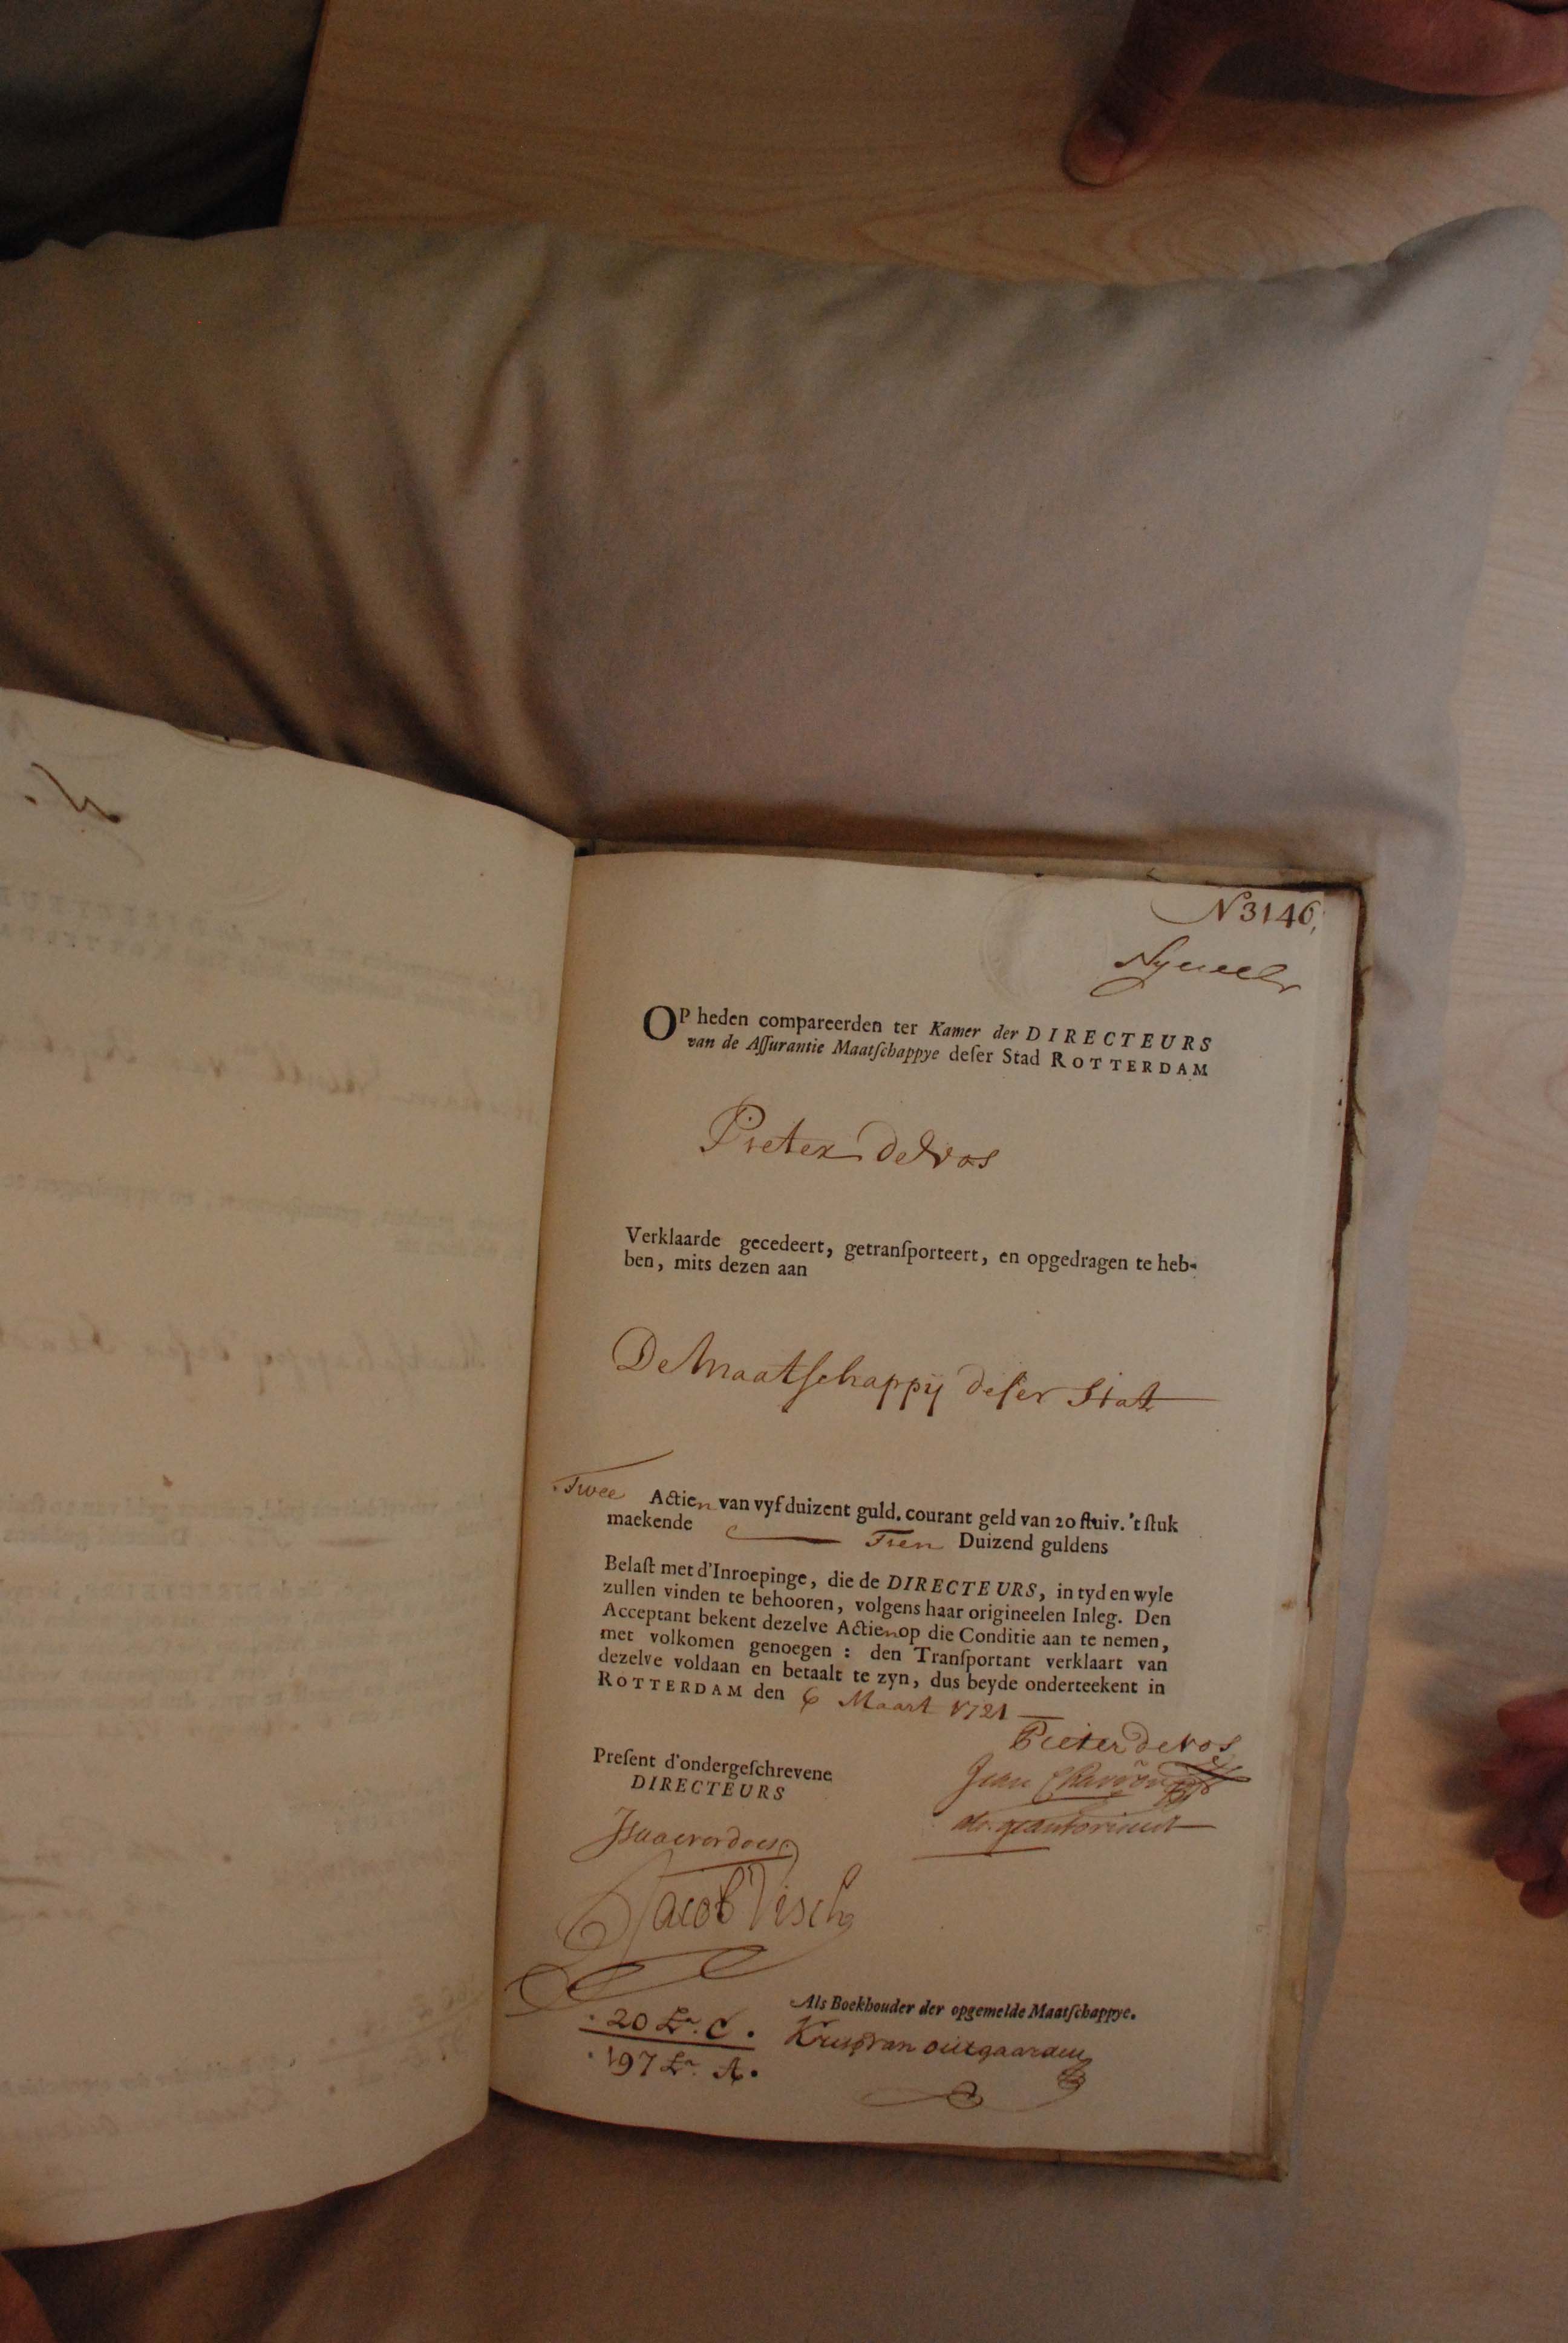 N 3146,
OP heden compareerden ter Kamer der DIRECTEURS
van de Aſſurantie Maatſchappye deſer Stad ROTTERDAM
Pieter De Vos
Verklaarde gecedeert, getranſporteert, en opgedragen te heb-
ben, mits dezen aan
De Maatſchappij deſer Stat
Twee Actien van vyfduizent guld. courant geld van 20 ſtuiv. 't ſtuk
maekende Tien Duizend guldens
Belaſt met d'Inroepinge, die de DIRECTEURS, in tyd en wyle
zullen vinden te behooren, volgens haar origineelen Inleg. Den
Acceptant bekent dezelve Actien op die Conditie aan te nemen,
met volkomen genoegen : den Tranſportant verklaart van
dezelve voldaan en betaalt te zyn, dus beyde onderteekent in
ROTTERDAM den 6 Maart 1721
Pieter de Vos
Preſent d'ondergeſchrevene
DIRECTEURS
Jean
Jacob Visch
Als Boekhouder der opgemelde Maatſchappye.
20 Lr. C.
197 Lr. A.